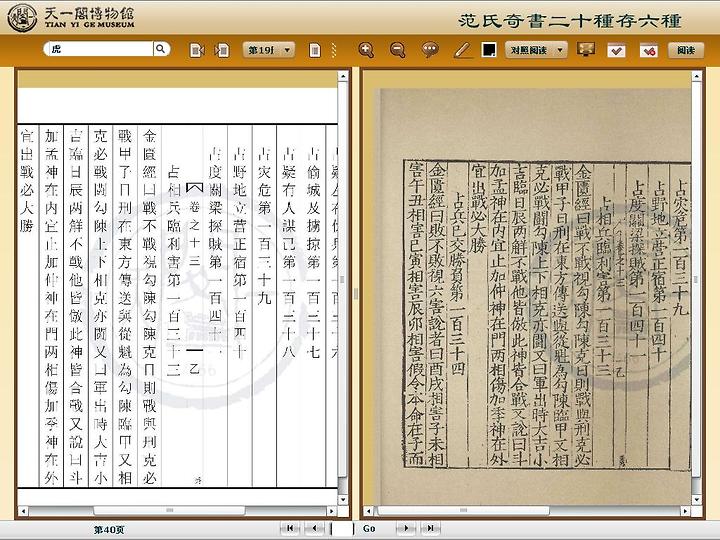 天一閣博物館
TIAN YI GE MUSEUM
范氏奇書二十種存六種
虎
第19
对照阅读
阅读
占偷城及掳掠第一百三十七
占疑有人謀己第一百三十八
占灾危第一百三十九
占野地立营正宿第一百四十
占度關梁探賊第一百四十一
卷之十三
乙
占相兵臨利害第一百三十三
金匱經曰戰不戰視勾陳勾陳克日則戰與刑克必
戰甲子日刑在東方傳送與從魁為勾陳臨甲又相
克必戰闘勾陳上下相克亦鬪又曰軍出時大吉小
吉臨日辰两解不戰他皆倣此神皆合戰又說曰斗
加孟神在内宜止加仲神在門两相傷加季神在外
宜出戰必大勝
占灾危第一百三十九
占野地立营正宿第一百四十
占度關梁探賊第一百四十一
卷之十三
乙
占相兵臨利害第一百三十三
金匱經曰戰不戰視勾陳勾陳克日則戰與刑克必
戰甲子日刑在東方傳送與從魁為勾陳臨甲又相
克必戰闘勾陳上下相克亦鬪又曰軍出時大吉小
吉臨日辰两解不戰他皆倣此神皆合戰又說曰斗
加孟神在内宜止加仲神在門两相傷加季神在外
宜出戰必大勝
占兵已交勝負第一百三十四
金匱經曰敗不敗視六害說者曰酉戌相害子未相
害午丑相害巳寅相害辰卯相害假令本命在子而
第40页
Go